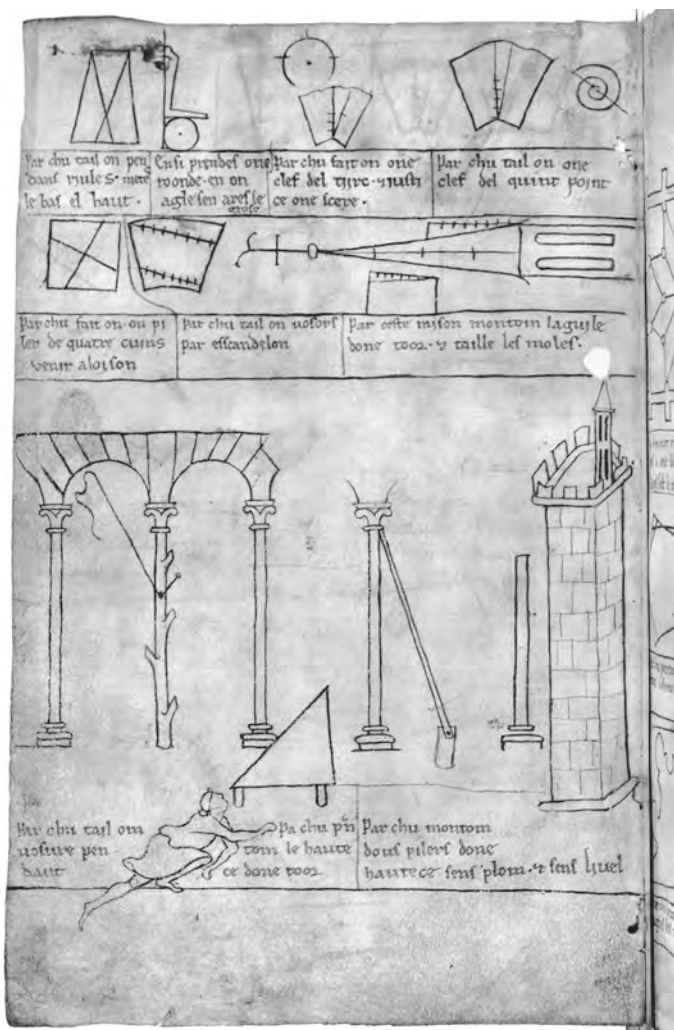 Par chu tail on pen
dans riules · mete
le bas el haut ·
Ensi prendes one
roonde · en on
agle sen ares le
grose
Par chu fait on one
clef del tirc · & iusti
ce one scere ·
Par chu tail on one
clef del quint point
Par chu fait on on pi
ler de quatre cuins
venir aloison
Par chu tail on vosors
par esscandelon
Par ceste raison montom laguile
done toor · & taille les moles ·
Par chu tail om
vosure pen
dant
Pa chu pñ
tom le haute
ce done toor
Par chu montom
dous pilers done
hautece sens plom · & sens livel